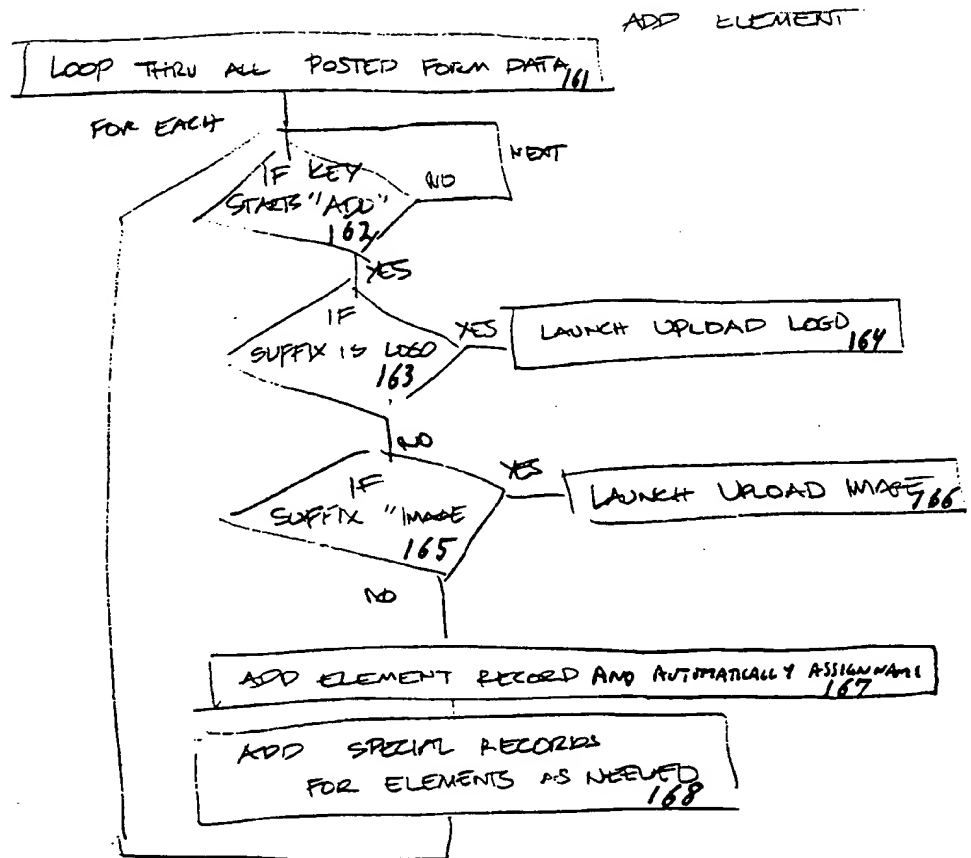 ADD ELEMENT
LOOP THRU ALL POSTED FORM DATA 161
FOR EACH
NEXT
IF KEY
STARTS "ADD"
162
NO
YES
IF
SUFFIX IS LOGO
163
YES
LAUNCH UPLOAD LOGO 164
NO
IF
SUFFIX "IMAGE
165
YES
LAUNCH UPLOAD IMAGE 166
NO
ADD ELEMENT RECORD AND AUTOMATICALLY ASSIGN NAME
167
ADD SPECIAL RECORDS
FOR ELEMENTS AS NEEDED
168